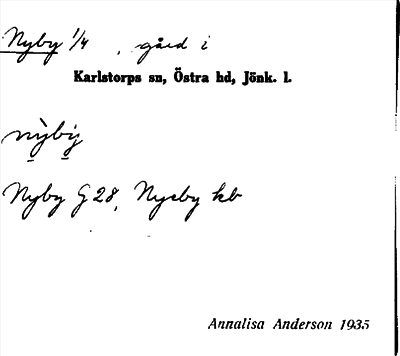 Nyby 1/4, gård i
Karlstorps sn, Östra hd, Jönk. l.
Nyby G 28, Nyeby kb
Annalisa Anderson 1935